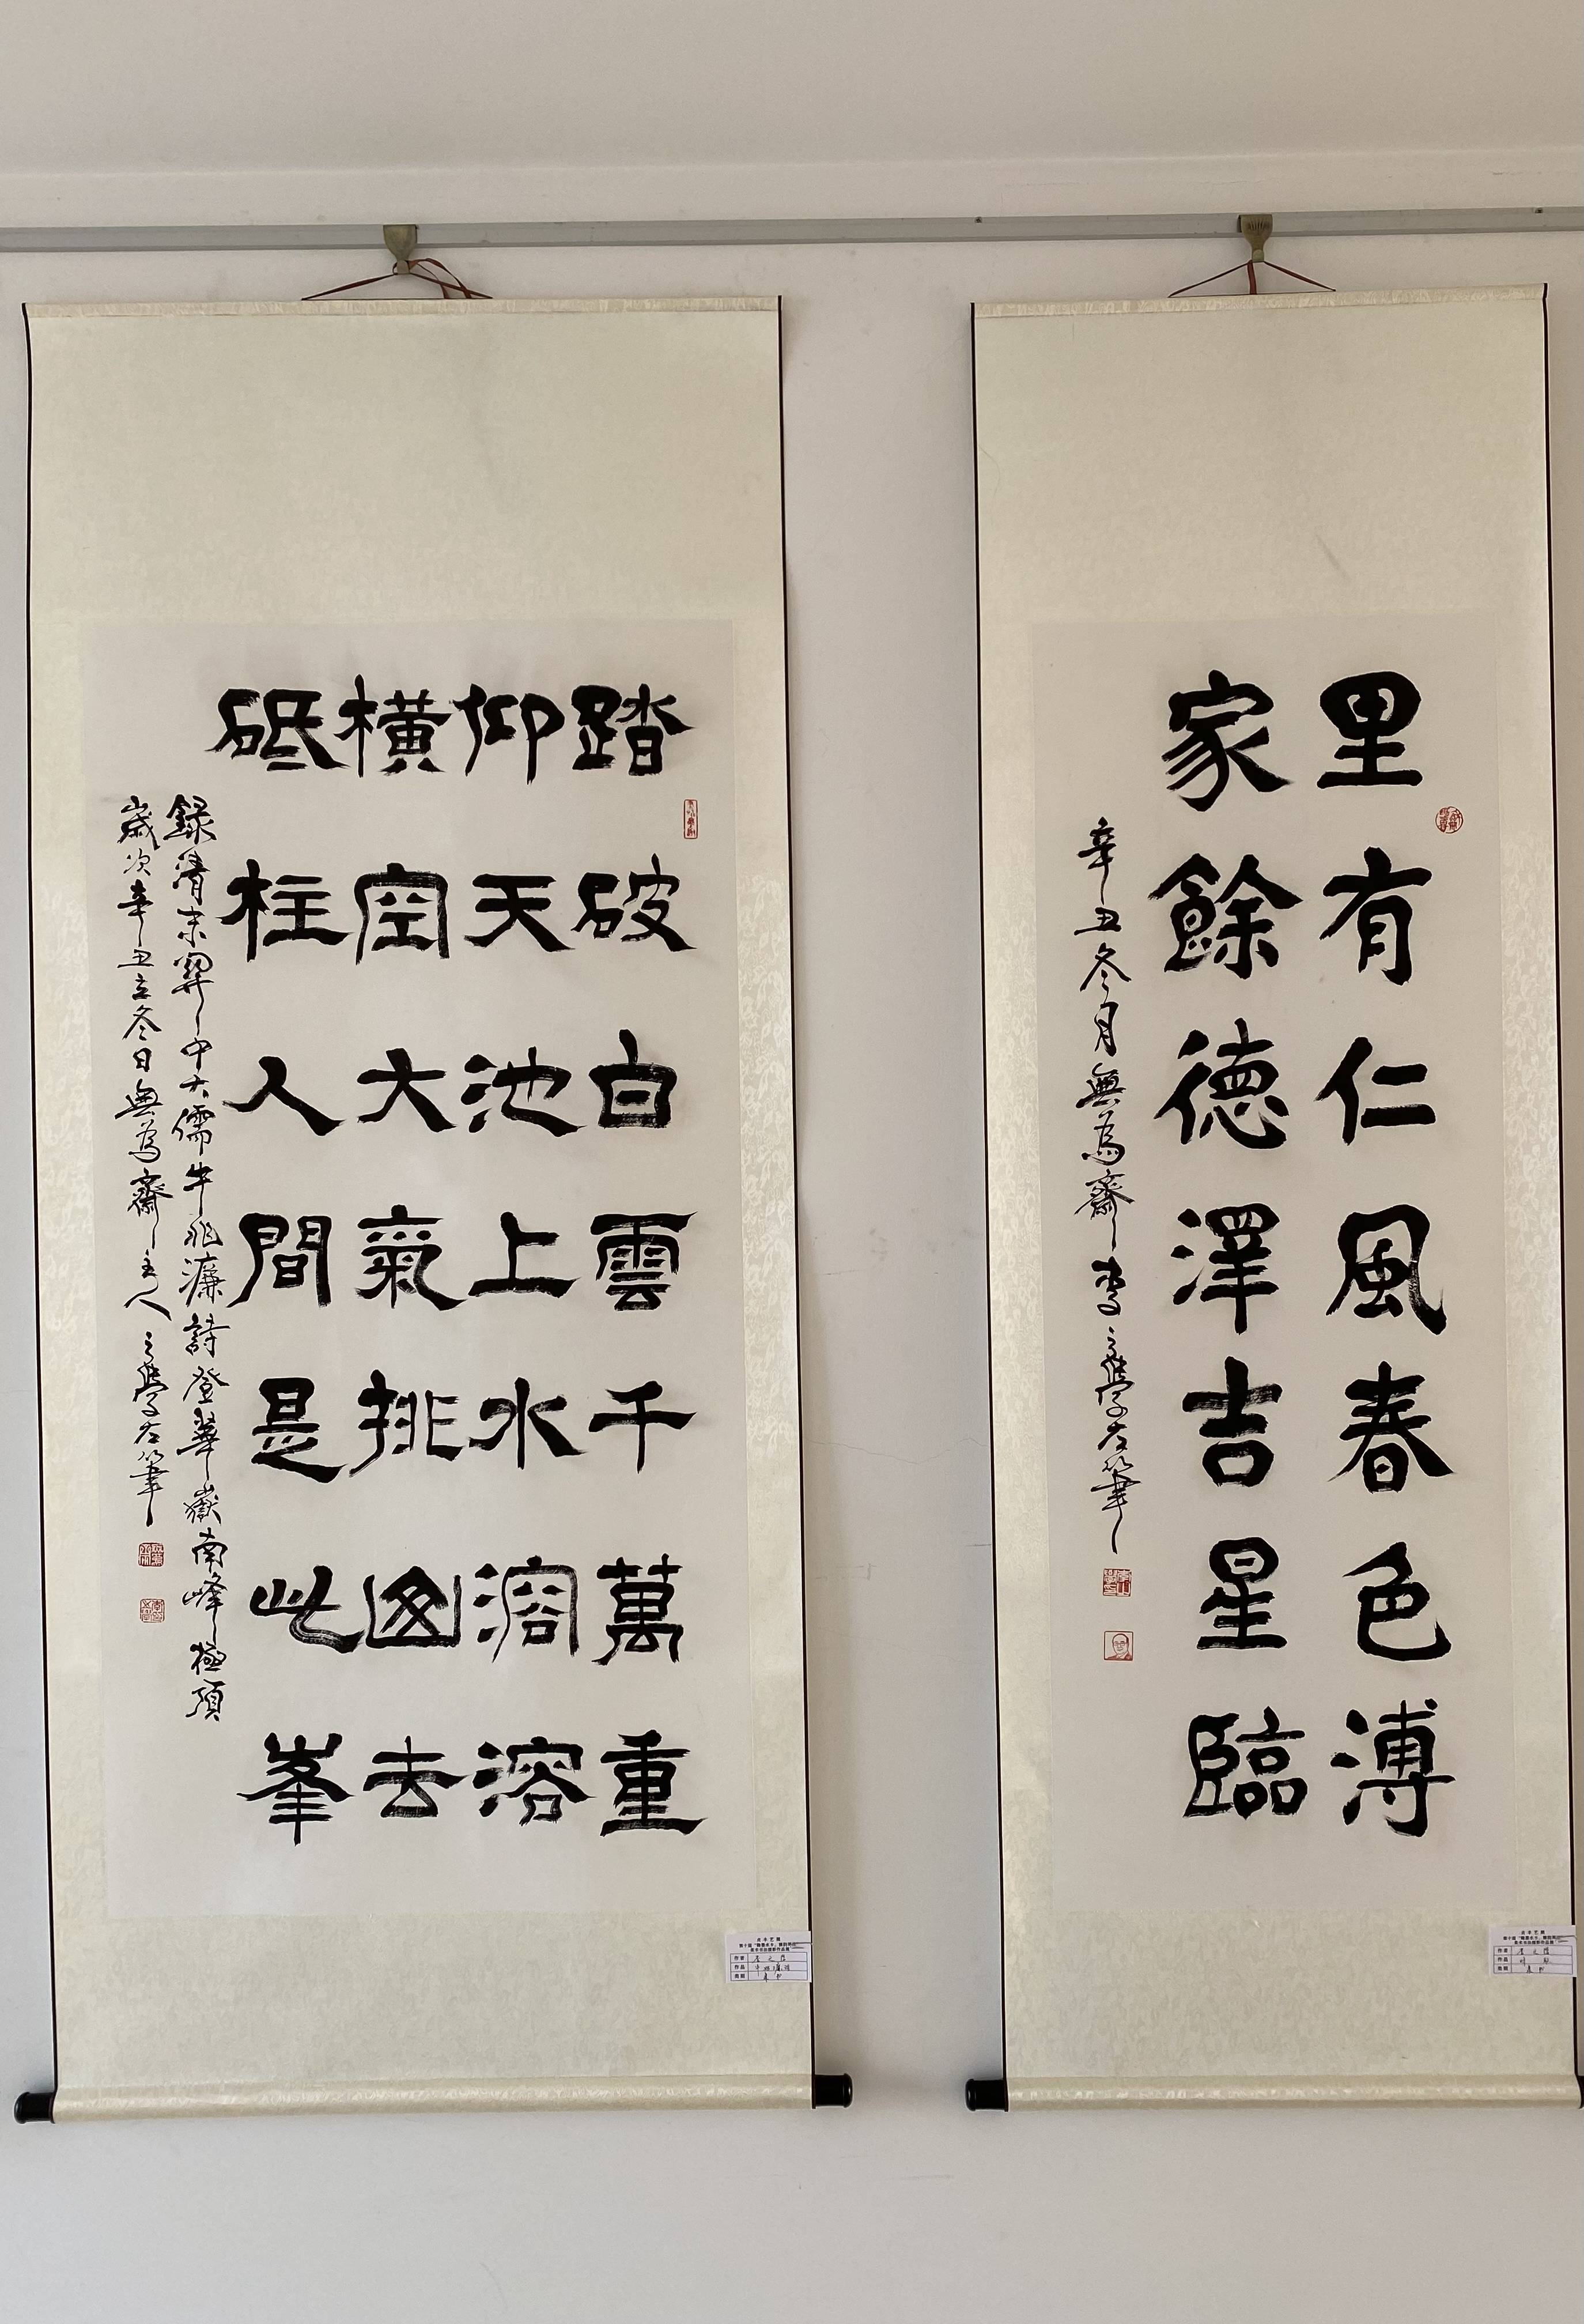 踏破白雲千萬重
仰天池上水溶溶
橫空大氣排山去
砥柱人間是此峯
錄清末關中大儒牛兆濂詩登華嶽南峰極頂
歲次辛丑立冬日無為齋主人之雋學左筆
里有仁風春色溥
家餘德澤吉星臨
辛丑冬月無為齋李之雋學左筆